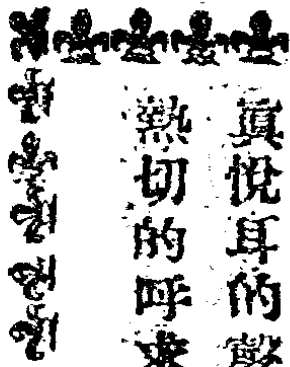 真悅耳的
熱切的呼求